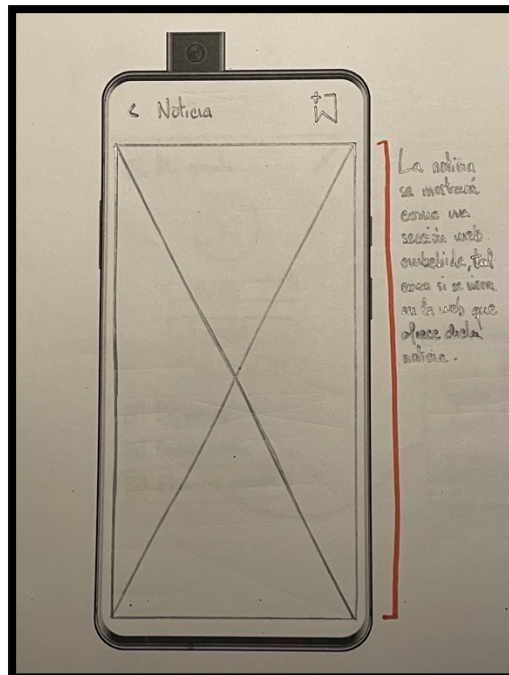 < Noticia
La noticia
se mostrará
como una
sección web
embebida, tal
como si se viera
en la web que
ofrece dicha
noticia.